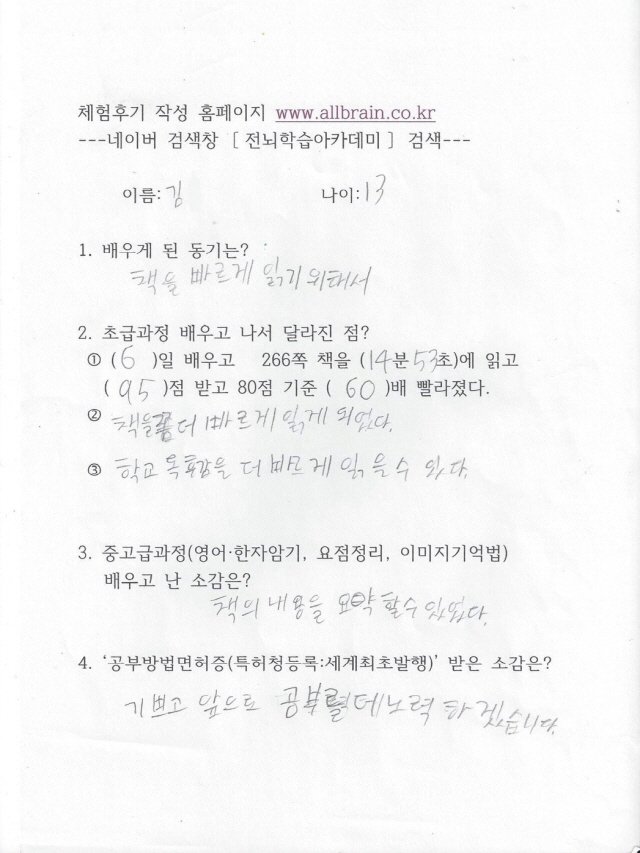 체험후기 작성 홈페이지 www.allbrain.co.kr
---네이버 검색창 [ 전뇌학습아카데미 ] 검색---
이름: 김 나이: 13
1. 배우게 된 동기는?
책을 빠르게 읽기 위해서
2. 초급과정 배우고 나서 달라진 점?
① ( 6 )일 배우고 266쪽 책을 (14분 53초)에 읽고
( 95 )점 받고 80점 기준 ( 60 )배 빨라졌다.
② 책을 좀 더 빠르게 읽게 되었다.
③ 학교 을 더 빠르게 읽을 수 있다.
3. 중고급과정(영어·한자암기, 요점정리, 이미지기억법)
배우고 난 소감은?
책의 내용을 요약 할 수 있었다.
4. '공부방법면허증(특허청등록:세계최초발행)' 받은 소감은?
기쁘고 앞으로 공부 노력 하겠습니다.